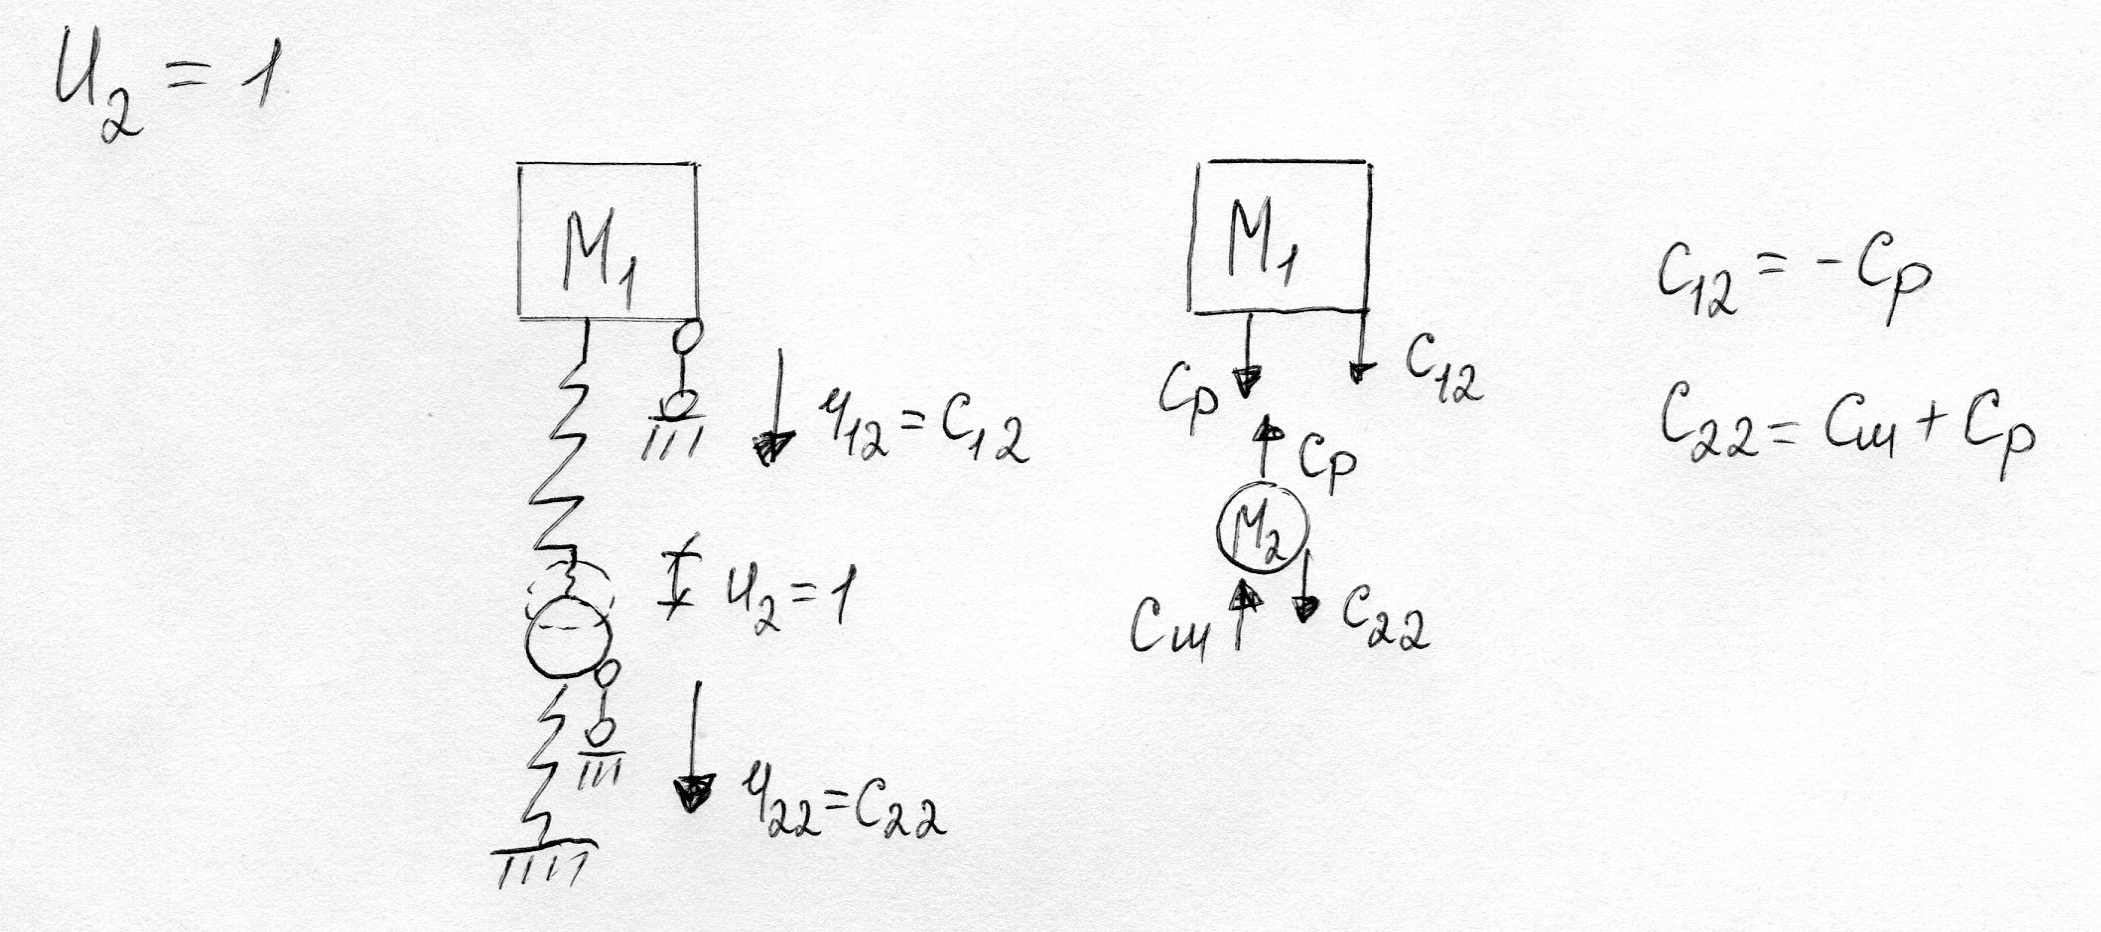 u₂ = 1
M₁
r₁₂ = C₁₂
u₂ = 1
r₂₂ = C₂₂
M₁
Cр
C₁₂
Cр
M₂
Cш
C₂₂
C₁₂ = -Cр
C₂₂ = Cш + Cр